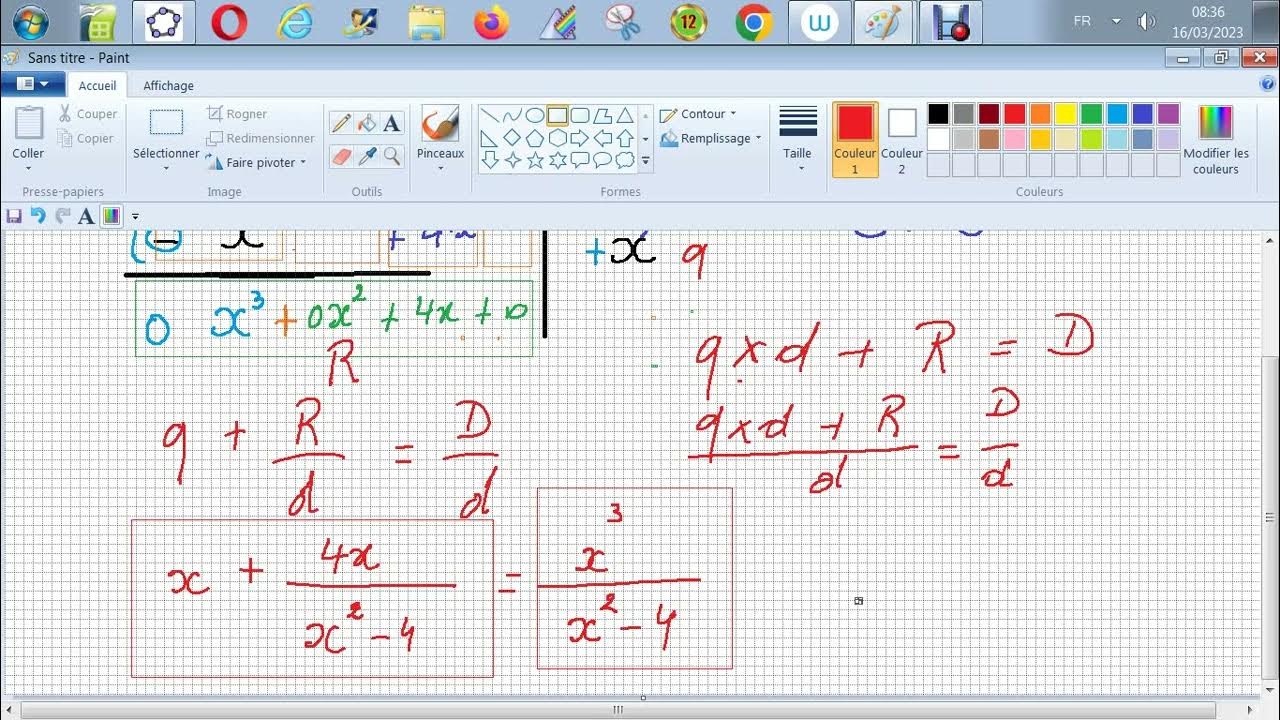 12
W
FR
08:36
16/03/2023
Sans titre - Paint
Accueil Affichage
Coller
Couper
Copier
Presse-papiers
Sélectionner
Rogner
Redimensionner
Faire pivoter
Image
A
Outils
Pinceaux
Formes
Contour
Remplissage
Taille
Couleur 1
Couleur 2
Couleurs
Modifier les couleurs
A
+x q
0 x³ + 0x² + 4x + 0
R
q × d + R = D
q + R/d = D/d
(q × d + R)/d = D/d
x + 4x/(x² - 4) = x³/(x² - 4)